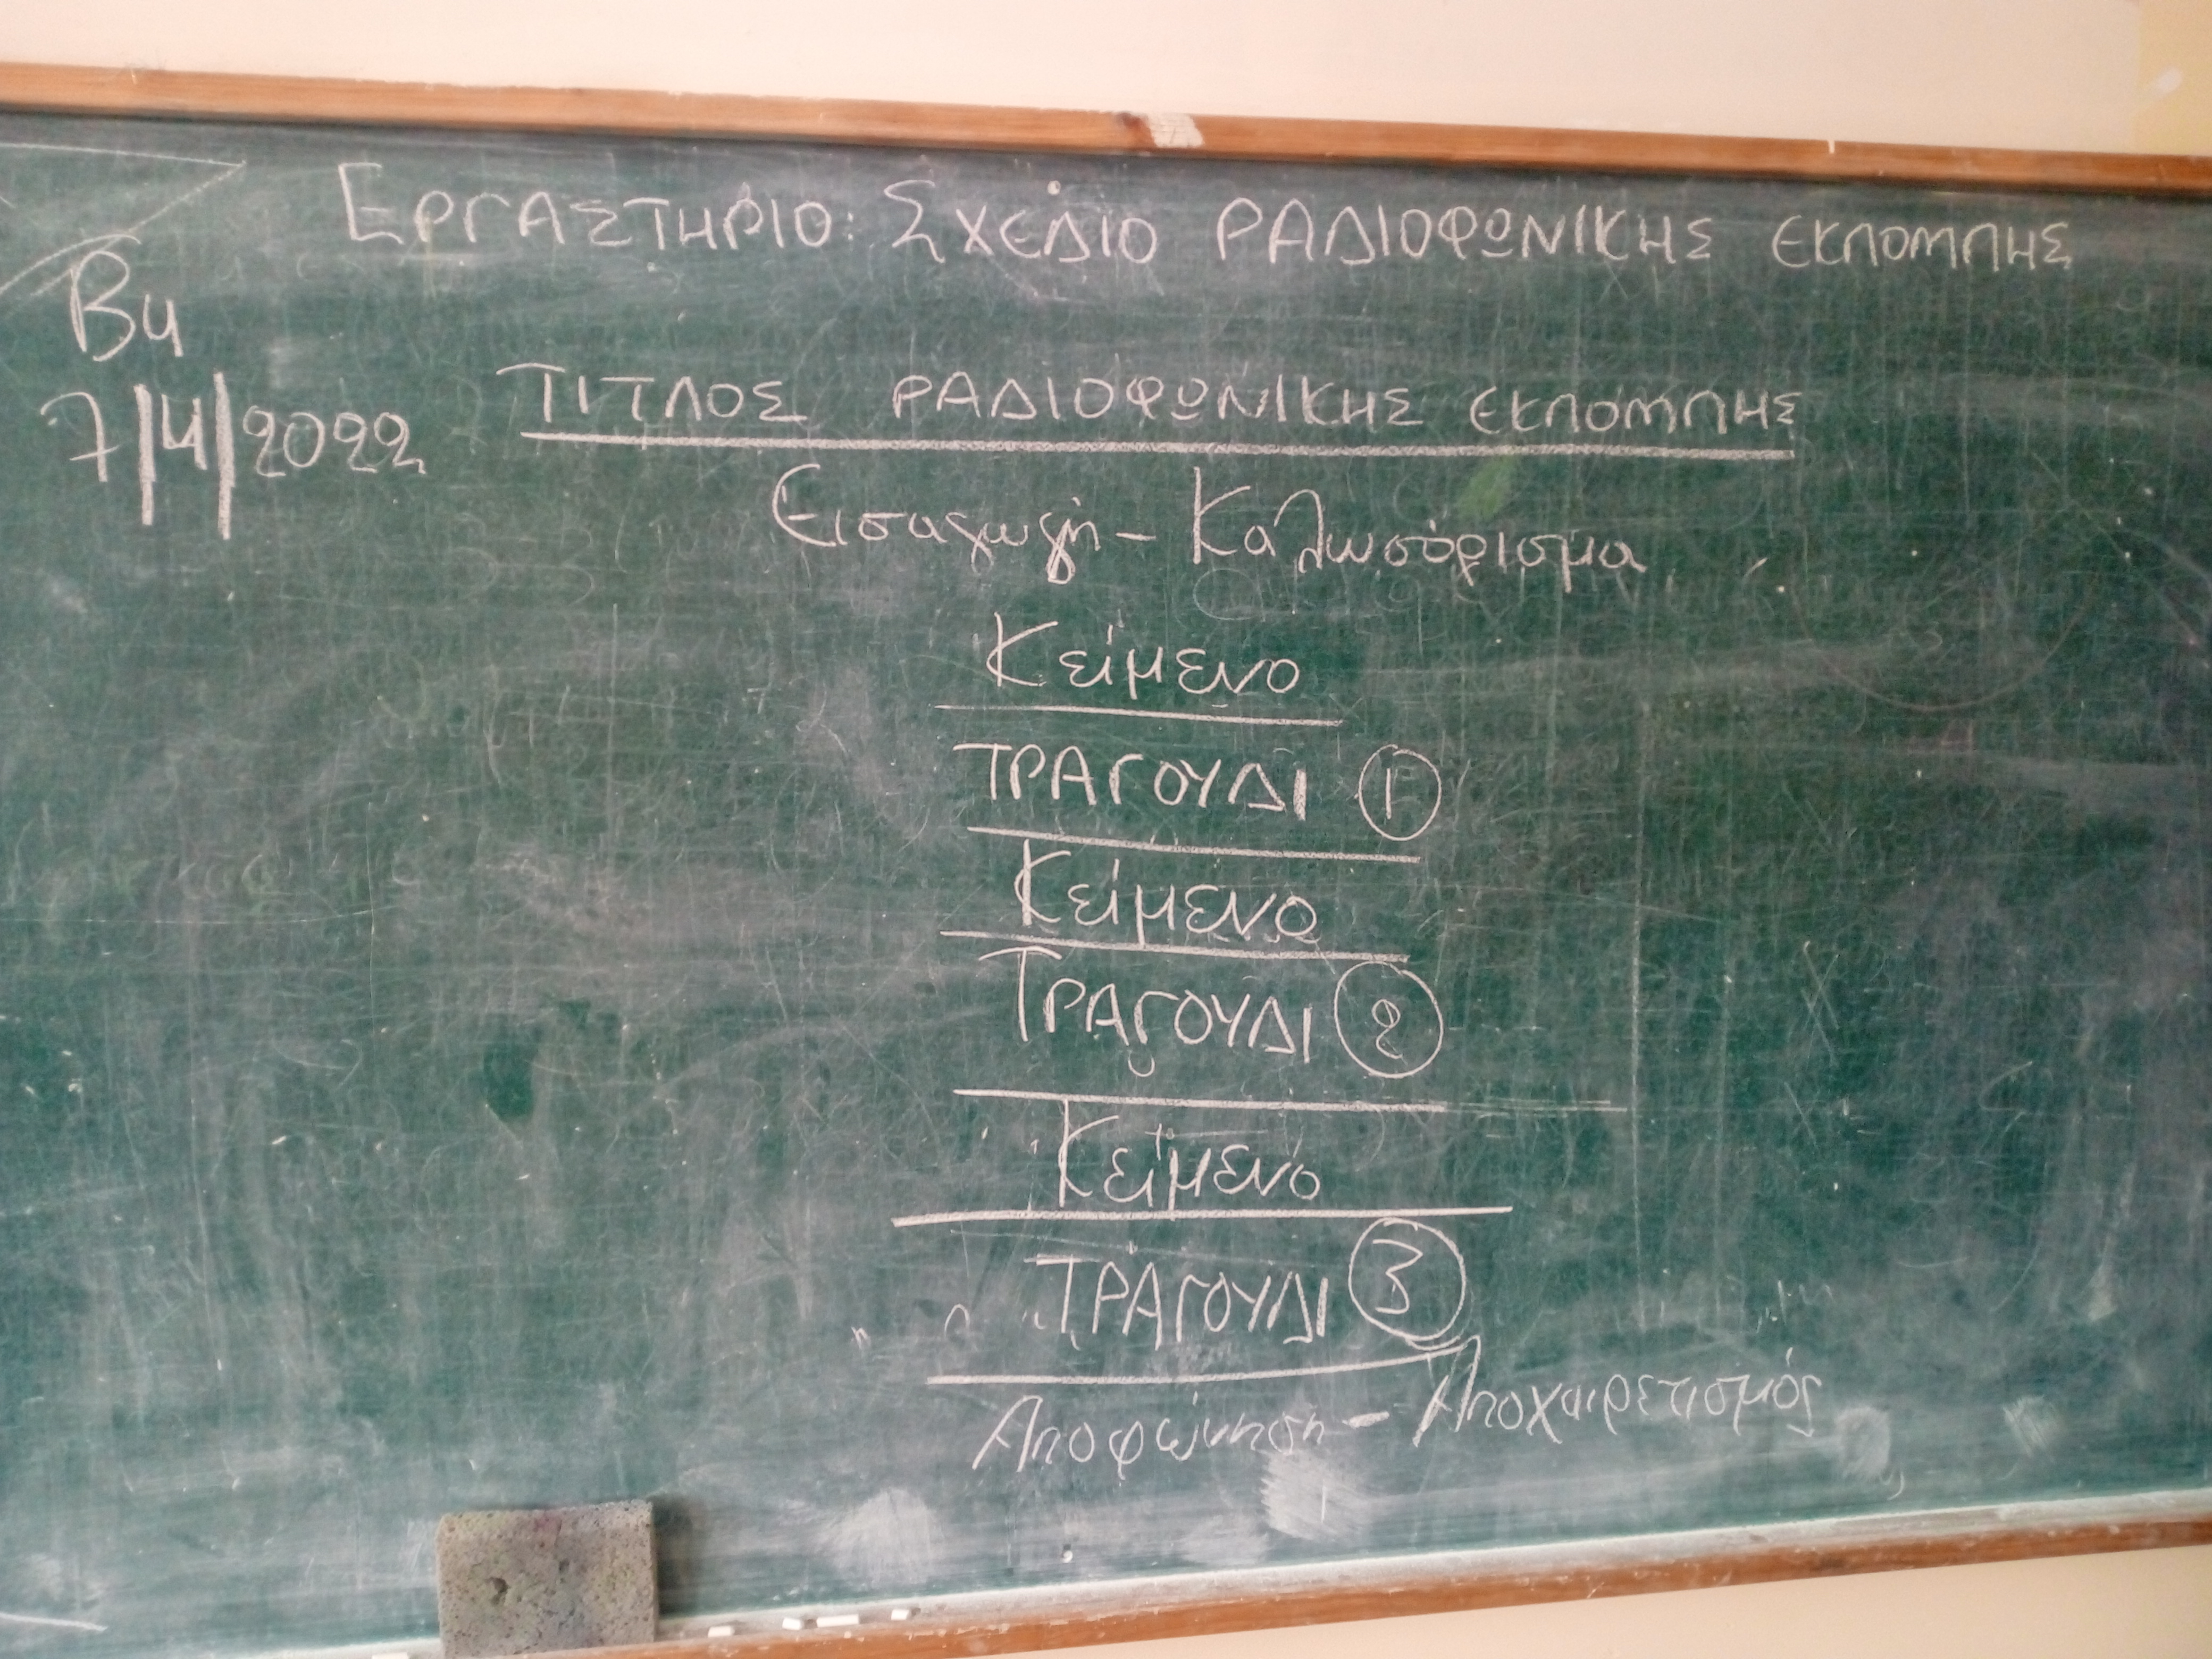 ΕΡΓΑΣΤΗΡΙΟ: ΣΧΕΔΙΟ ΡΑΔΙΟΦΩΝΙΚΗΣ ΕΚΠΟΜΠΗΣ
Β4
7/4/2022
ΤΙΤΛΟΣ ΡΑΔΙΟΦΩΝΙΚΗΣ ΕΚΠΟΜΠΗΣ
Εισαγωγή - Καλωσόρισμα
Κείμενο
ΤΡΑΓΟΥΔΙ 1
Κείμενο
ΤΡΑΓΟΥΔΙ 2
Κείμενο
ΤΡΑΓΟΥΔΙ 3
Αποφώνηση - Αποχαιρετισμός